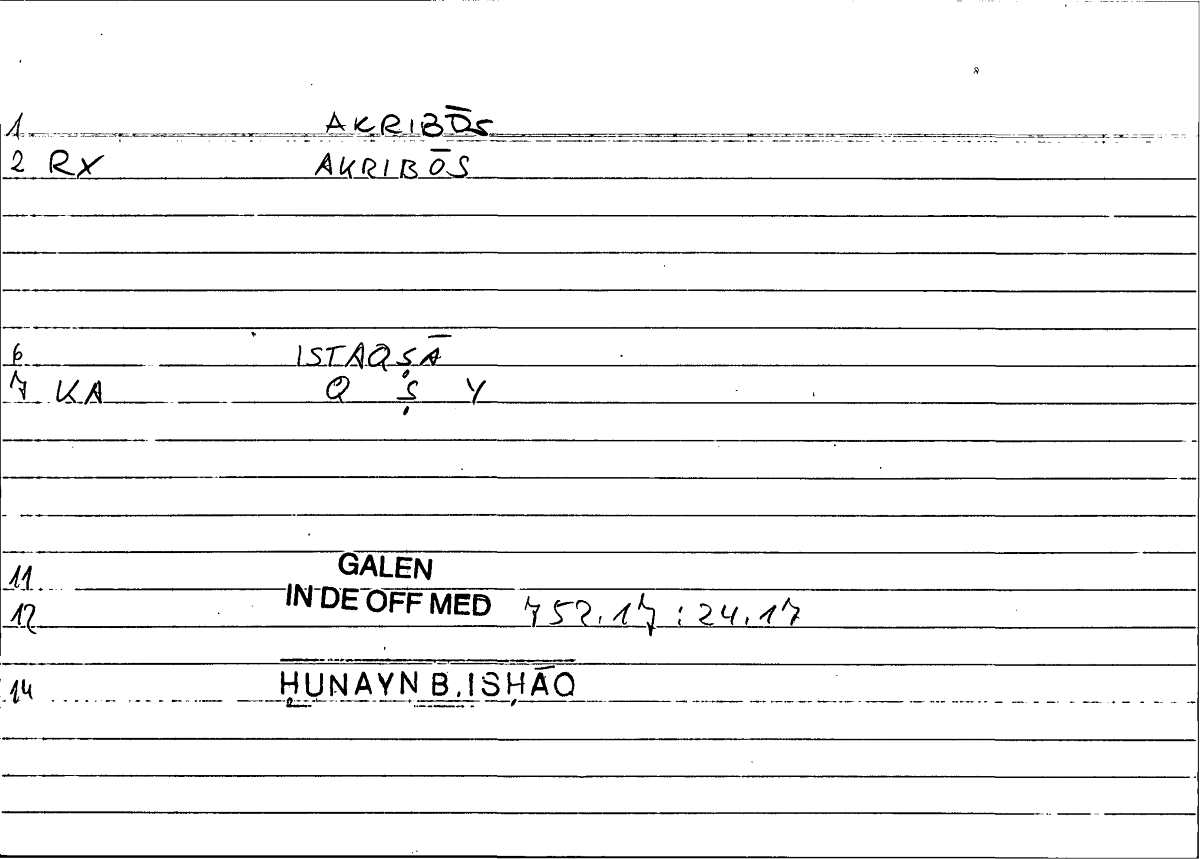 1 AKRIBŌS
2 RX AKRIBŌS
6 ISTAQṢĀ
7 KA Q Ṣ Y
11 GALEN
12 IN DE OFF MED 752.17 : 24.17
14 ḤUNAYN B. ISḤĀQ